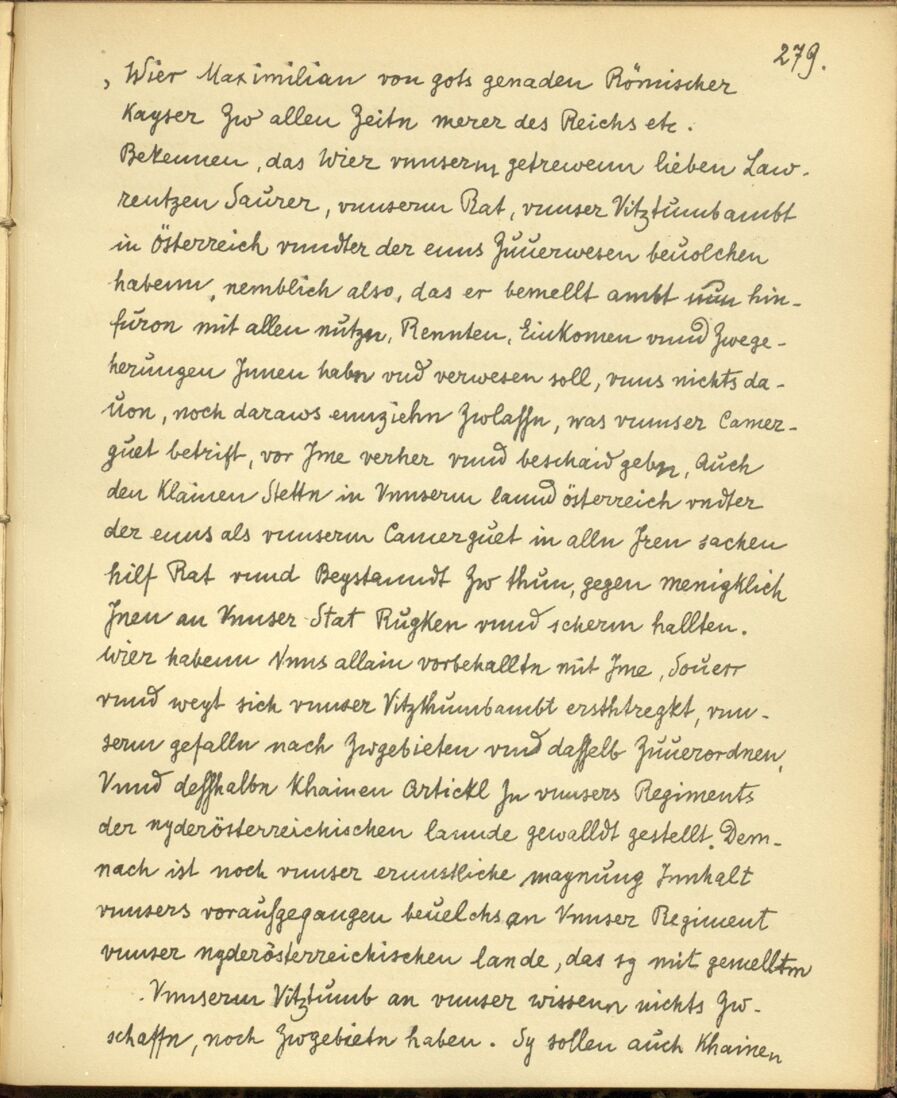 279.
„Wier Maximilian von gots genaden Römischer
Kayser Zw allen Zeitn merer des Reichs etc.
Bekennen, das Wier vnnserm getrewenn lieben Law-
rentzen Saurer, vnnserm Rat, vnnser Vitztumbambt
in Österreich vnndter der enns Zuuerwesen beuolchen
habenn, nemblich also, das er bemellt ambt nun hin-
furon mit allen nutzn, Rennten, Einkomen vnnd Zwege-
herungen Innen habn vnd verwesen soll, vnns nichts da-
uon, noch daraws ennziehn Zwlassn, was vnnser Camer-
guet betrift, vor Ime verher vnnd beschaid gebn, Auch
den Klainen Stettn in Vnnserm lannd österreich vndter
der enns als vnnserm Camerguet in alln Iren sachen
hilf Rat vnnd Beystanndt Zw thun, gegen menigklich
Inen an Vnnser Stat Rugken vnnd scherm hallten.
Wier habenn Vnns allain vorbehalltn mit Ime, Souerr
vnnd weyt sich vnnser Vitzthumbambt ersthtregkt, vnn-
serm gefalln nach Zwgebieten vnnd dasselb Zuuerordnen,
Vnnd desshalbn Khainen Artickl In vnnsers Regiments
der nyderösterreichischen lannde gewalldt gestellt. Dem-
nach ist noch vnnser ernnstliche maynung Innhalt
vnnsers voraufgegangen beuelchs an Vnnser Regiment
vnnser nyderösterreichischen lande, das sy mit gemelltm
Vnnserm Vitztumb an vnnser wissenn nichts Zw-
schaffn, noch Zwgebietn haben. Sy sollen auch Khainen